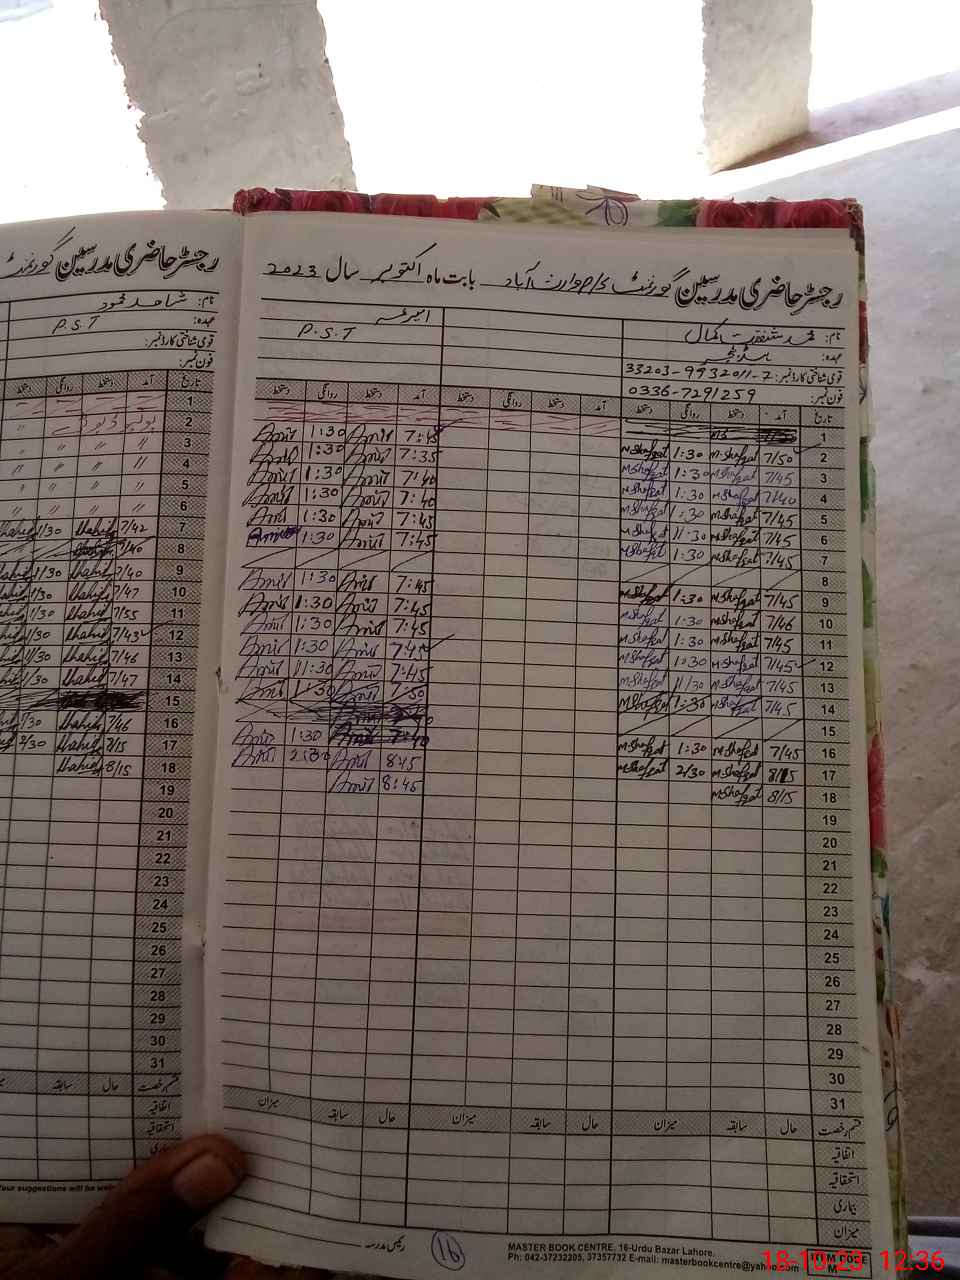 رجسٹر حاضری مدرسین گورنمنٹ
نام: شاہد محمود
عہدہ: P.S.T
قومی شناختی کارڈ نمبر:
فون نمبر:
تاریخ آمد دستخط روانگی دستخط
1
2
3 〃 〃 〃 〃
4 〃 〃 〃 〃
5 〃 〃 〃 〃
6 〃 〃 〃 〃
7 7/42 Shahid 1/30 Shahid
8
9 7/40 Shahid 1/30
10 7/47 Shahid 1/30
11 7/55 Shahid 1/30
12 7/43 Shahid 1/30
13 7/46 Shahid 1/30
14 7/47 Shahid 1/30
15
16 7/46 Shahid 1/30
17 7/15 Shahid 2/30
18 8/15 Shahid
19
20
21
22
23
24
25
26
27
28
29
30
31
قسم رخصت حال سابقہ
اتفاقیہ
استحقاقیہ
بیماری
Your suggestions will be
رجسٹر حاضری مدرسین گورنمنٹ بابت ماہ اکتوبر سال 2023
نام: محمد شفقت کمال
عہدہ: ہیڈ ٹیچر P.S.T
قومی شناختی کارڈ نمبر: 33203-9932011-7
فون نمبر: 0336-7291259
تاریخ آمد دستخط روانگی دستخط آمد دستخط روانگی دستخط آمد دستخط روانگی دستخط
1
2 7/50 M.Shafqat 1:30 M.Shafqat 7:45 Amir 1:30 Amir
3 7/45 M.Shafqat 1:30 M.Shafqat 7:35 Amir 1:30 Amir
4 7/40 M.Shafqat 1:30 M.Shafqat 7:40 Amir 1:30 Amir
5 7/45 M.Shafqat 1:30 M.Shafqat 7:40 Amir 1:30 Amir
6 7/45 M.Shafqat 1:30 M.Shafqat 7:45 Amir 1:30 Amir
7 7/45 M.Shafqat 1:30 M.Shafqat 7:45 Amir 1:30
8
9 7/45 M.Shafqat 1:30 M.Shafqat 7:45 Amir 1:30 Amir
10 7/46 M.Shafqat 1:30 M.Shafqat 7:45 Amir 1:30 Amir
11 7/45 M.Shafqat 1:30 M.Shafqat 7:45 Amir 1:30 Amir
12 7/45 M.Shafqat 1:30 M.Shafqat 7:45 Amir 1:30 Amir
13 7/45 M.Shafqat 1/30 M.Shafqat 7:45 Amir 1:30 Amir
14 7/45 M.Shafqat 1:30 M.Shafqat 7:50 Amir 1:30 Amir
15
16 7/45 M.Shafqat 1:30 M.Shafqat 7:40 Amir 1:30 Amir
17 8/15 M.Shafqat 2/30 M.Shafqat 8:45 Amir 2:30 Amir
18 8/15 M.Shafqat 8:45 Amir
19
20
21
22
23
24
25
26
27
28
29
30
31
قسم رخصت حال سابقہ میزان حال سابقہ میزان حال سابقہ میزان
اتفاقیہ
استحقاقیہ
بیماری
میزان
رئیس مدرسہ
91
MASTER BOOK CENTRE, 16-Urdu Bazar Lahore.
Ph: 042-37232205, 37357732 E-mail: masterbookcentre@yahoo.com
ITEM CODE
M
18-10-23 12:36